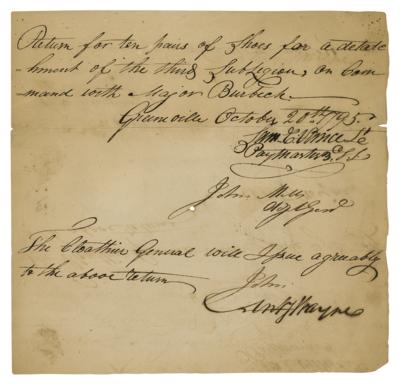 Return for ten pairs of Shoes for a detatc
hment of the third Sublegion, on Com
mand with Major Burbeck.
Greenville October 20th 1795
Lt
Paymaster 3d S. L.
John Mills
Adjt Genl
The Cloathier General will Issue agreably
to the above return
John
Anty Wayne